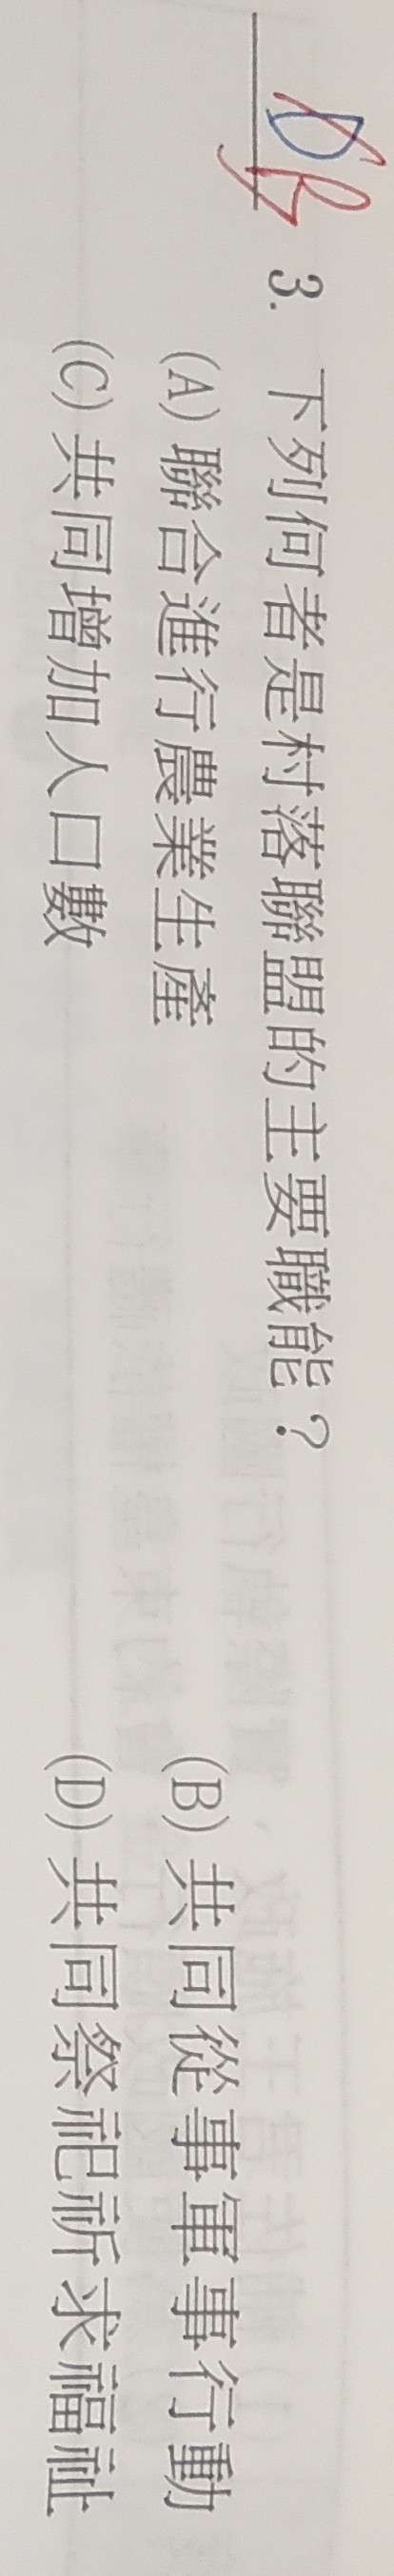 DB 3. 下列何者是村落聯盟的主要職能？
(A) 聯合進行農業生產 (B) 共同從事軍事行動
(C) 共同增加人口數 (D) 共同祭祀祈求福祉